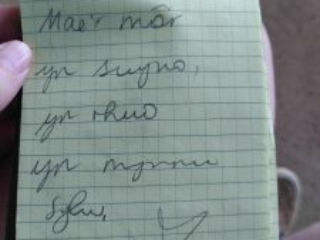 Mae'r môr
yn swyno,
yn rhuo
yn mynnu
Sylw,